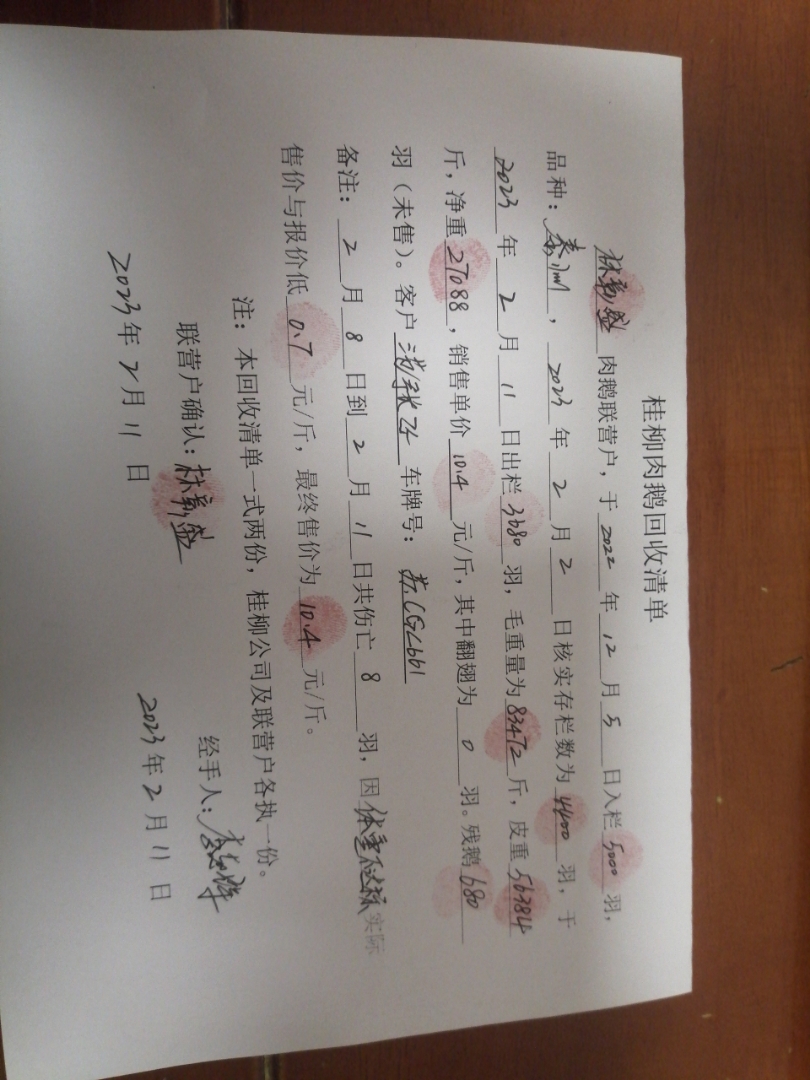 桂柳肉鹅回收清单
林新盛 肉鹅联营户，于 2022 年 12 月 5 日入栏 5000 羽，
品种：泰州，2023 年 2 月 2 日核实存栏数为 4400 羽，于
2023 年 2 月 11 日出栏 3680 羽，毛重量为 83472 斤，皮重 56384
斤，净重 27088，销售单价 10.4 元/斤，其中翻翅为 0 羽。残鹅 680
羽（未售）。客户 车牌号：苏CGL661
备注：2 月 8 日到 2 月 11 日共伤亡 8 羽，因 体重不达标 实际
售价与报价低 0.7 元/斤，最终售价为 10.4 元/斤。
注：本回收清单一式两份，桂柳公司及联营户各执一份。
联营户确认：林新盛 经手人：
2023年2月11日 2023年2月11日